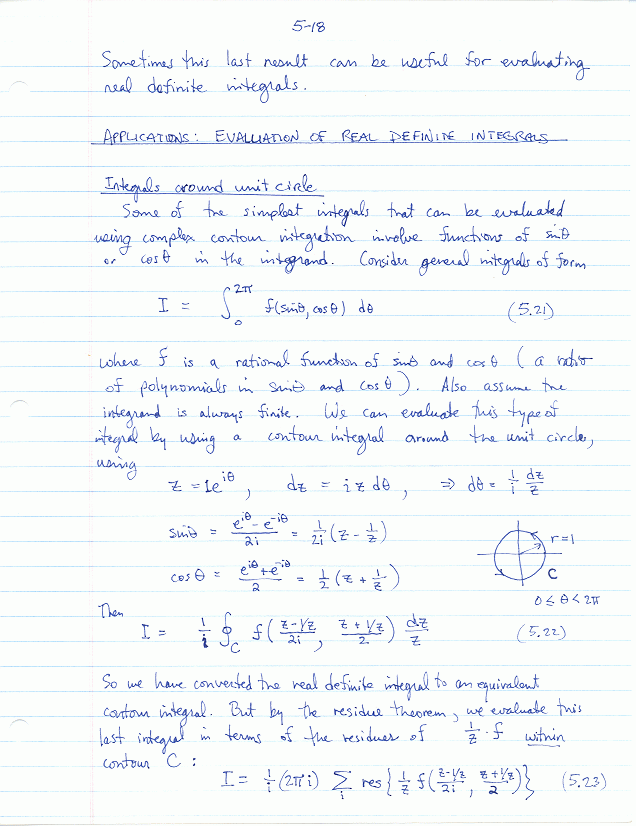 5-18
Sometimes this last result can be useful for evaluating
real definite integrals.
APPLICATIONS: EVALUATION OF REAL DEFINITE INTEGRALS
Integrals around unit circle
Some of the simplest integrals that can be evaluated
using complex contour integration involve functions of sinθ
or cosθ in the integrand. Consider general integrals of form
I = ∫₀^{2π} f(sinθ, cosθ) dθ (5.21)
where f is a rational function of sinθ and cosθ (a ratio
of polynomials in sinθ and cosθ). Also assume the
integrand is always finite. We can evaluate this type of
integral by using a contour integral around the unit circle,
using
z = 1e^{iθ}, dz = iz dθ, ⇒ dθ = (1/i) dz/z
sinθ = (e^{iθ} - e^{-iθ})/2i = 1/2i (z - 1/z)
r=1
cosθ = (e^{iθ} + e^{-iθ})/2 = 1/2 (z + 1/z)
C
0 ≤ θ < 2π
Then
I = 1/i ∮_C f((z-1/z)/2i, (z+1/z)/2) dz/z (5.22)
So we have converted the real definite integral to an equivalent
contour integral. But by the residue theorem, we evaluate this
last integral in terms of the residues of 1/z · f within
contour C:
I = 1/i (2πi) Σ_i res{1/z f((z-1/z)/2i, (z+1/z)/2)} (5.23)